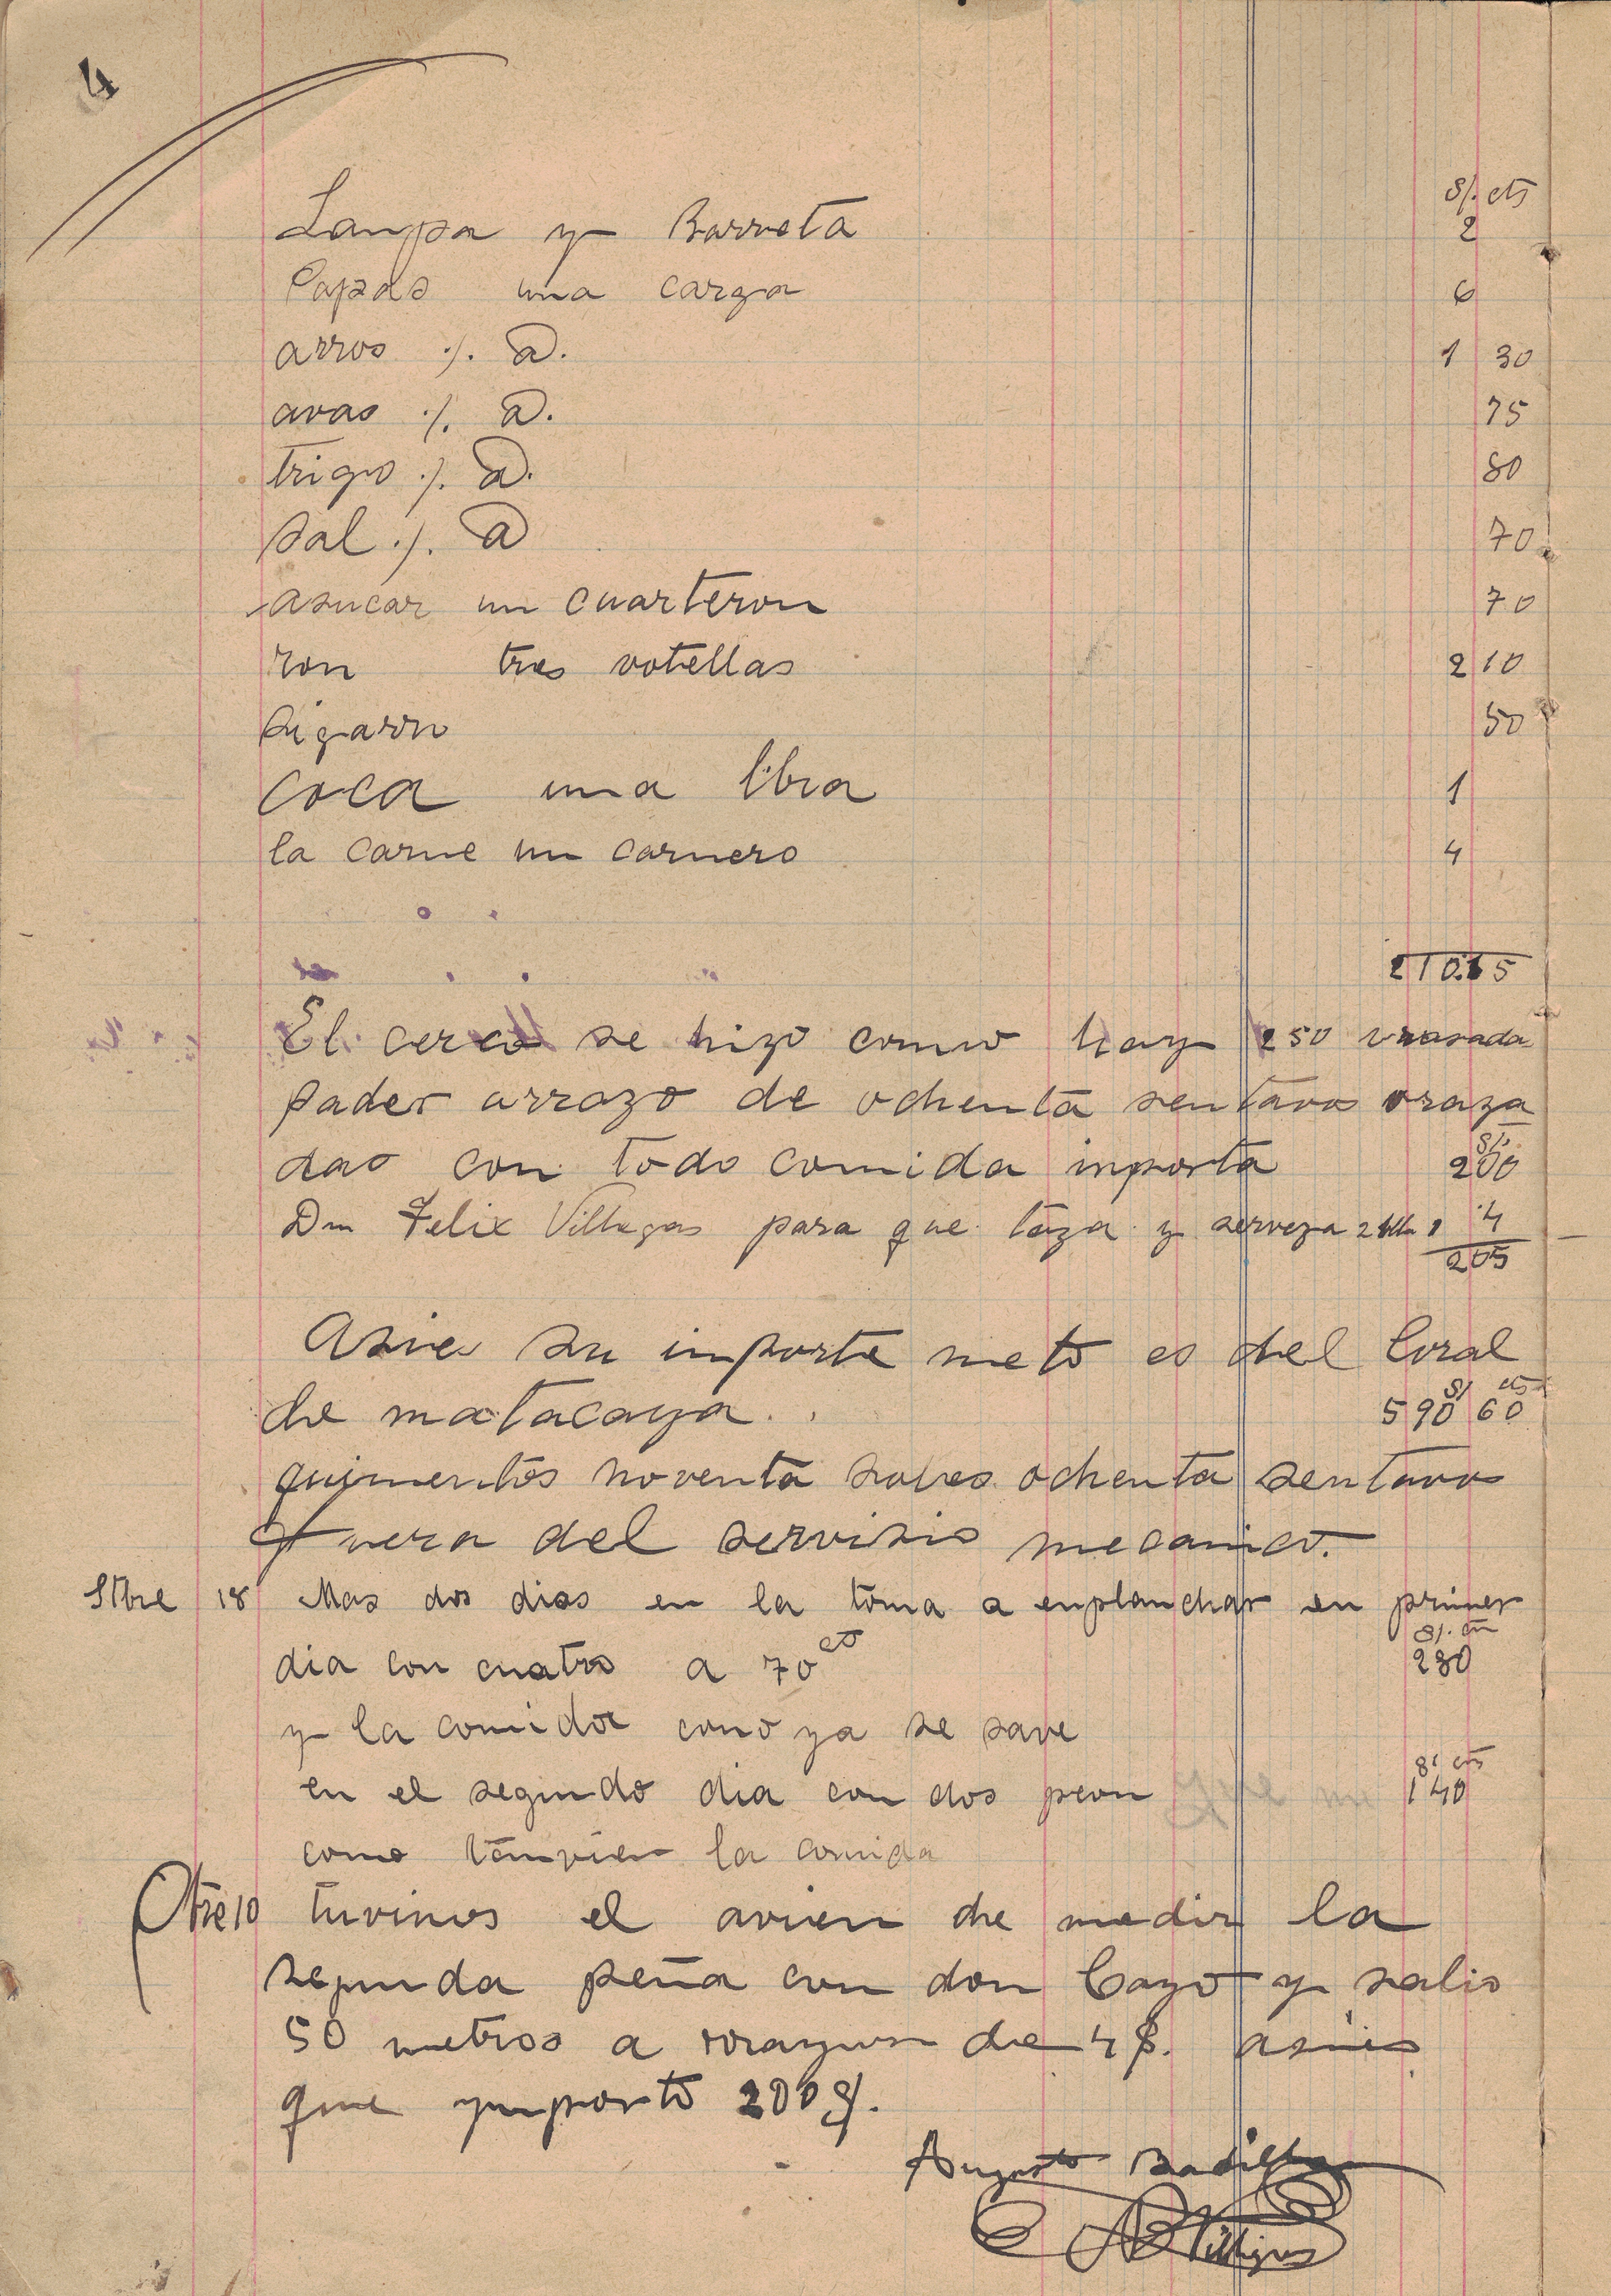 4
S/. cts
Lampa y Barreta 2
Papas una carga 6
arros ·/. @. 1 30
avas ·/. @. 75
trigo ·/. @. 80
sal ·/. @ 70
asucar un cuarteron 70
ron tres votellas 2 10
sigarro 50
coca una libra 1
la carne un carnero 4
El cerco se hizo como hay 250 vrasada
pader arrazo de ochenta sentavos vraza
S/.
das con todo comida importa 200
Dn Felix Villegas para que taza y serveza 2 1 4
205
Asies su importe neto es del Coral
S/ cts
de matacaya 590 60
quinientos noventa soles ochenta sentavos
fuera del servisio mecanico.
Stbre 18 Mas dos dias en la toma a enplanchar en primer
S/. cts
dia con cuatro a 70 cts 280
y la comida como ya se save
S/ cts
en el segundo dia con dos peon 140
como tanvien la comida
Otre 10 tuvimos el avien de medir la
segunda peña con don Cayo y salio
50 metros a rrayson de 4 $. asies
que ymporto 200 S/.
Augusto Badillo
Villegas